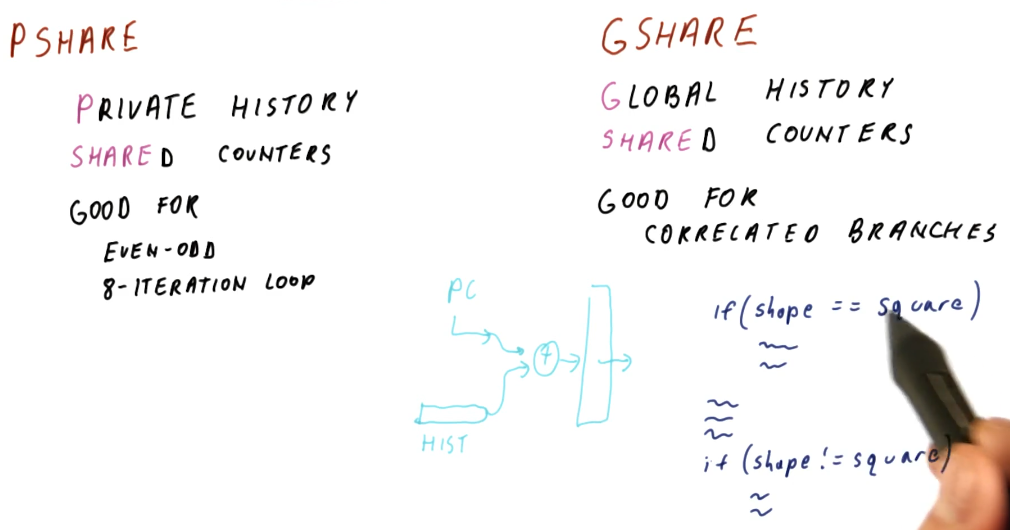 PSHARE
PRIVATE HISTORY
SHARED COUNTERS
GOOD FOR
EVEN-ODD
8-ITERATION LOOP
GSHARE
GLOBAL HISTORY
SHARED COUNTERS
GOOD FOR
CORRELATED BRANCHES
PC
+
HIST
if (shape == square)
if (shape != square)